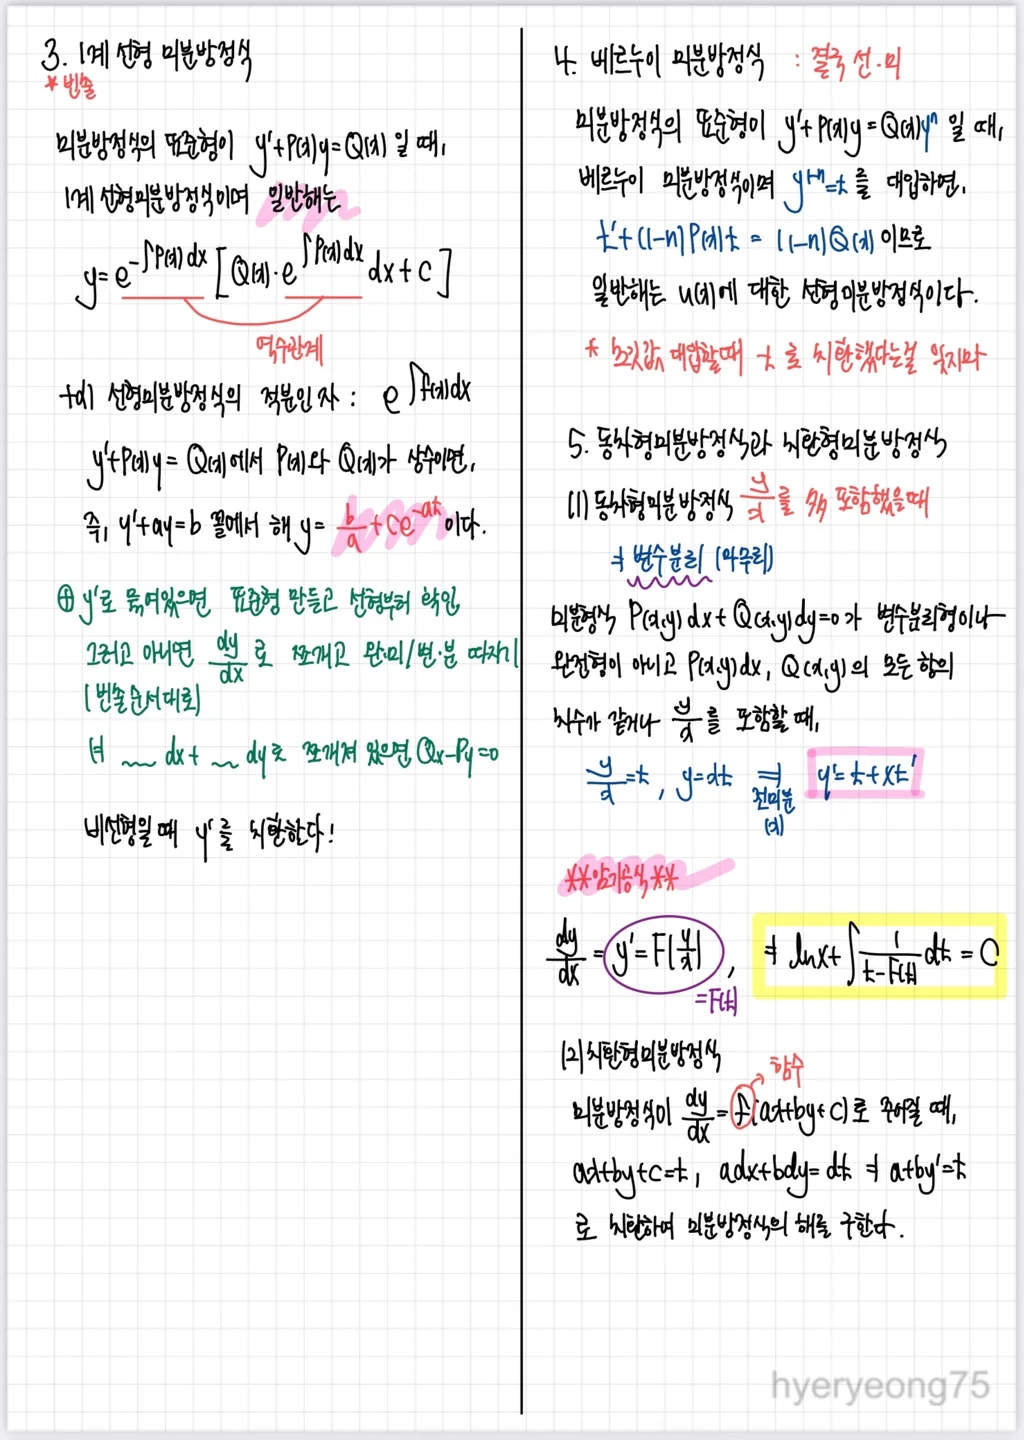 3. 1계 선형 미분방정식
* 빈출
미분방정식의 표준형이 y'+P(x)y=Q(x) 일 때,
1계 선형미분방정식이며 일반해는
y=e^{-∫P(x)dx}[Q(x)·e^{∫P(x)dx}dx+c]
역수관계
+α) 선형미분방정식의 적분인자 : e^{∫f(x)dx}
y'+P(x)y=Q(x)에서 P(x)와 Q(x)가 상수이면,
즉, y'+ay=b 꼴에서 해 y= b/a+ce^{-at}이다.
⊕ y'로 묶여있으면 표준형 만들고 선형부터 확인
그러고 아니면 dy/dx로 쪼개고 완·미/변·분 따지기
(변솔순서대로)
~ dx+ ~ dy로 쪼개져 있으면 Qx-Py=0
비선형일때 y'를 치환한다!
4. 베르누이 미분방정식 : 결국 선·미
미분방정식의 표준형이 y'+P(x)y=Q(x)y^n 일 때,
베르누이 미분방정식이며 y^{1-n}=t를 대입하면,
t'+(1-n)P(x)t = (1-n)Q(x) 이므로
일반해는 u(x)에 대한 선형미분방정식이다.
* 초깃값 대입할때 t로 치환했다는걸 잊지마
5. 동차형미분방정식과 치환형미분방정식
(1) 동차형미분방정식 y/x를 多 포함했을때
⇒ 변수분리 (마무리)
미분형식 P(x,y)dx+Q(x,y)dy=0가 변수분리형이나
완전형이 아니고 P(x,y)dx, Q(x,y)의 모든 항의
차수가 같거나 y/x를 포함할 때,
y/x=t, y=xt ⇒ y'=t+xt'
전미분
(x)
**암기공식**
dy/dx = y'=F(y/x), ⇒ lnx+∫1/(t-F(t))dt=C
=F(t)
(2) 치환형미분방정식
함수
미분방정식이 dy/dx=f(ax+by+c)로 주어질 때,
ax+by+c=t, adx+bdy=dt ⇒ a+by'=t
로 치환하여 미분방정식의 해를 구한다.
hyeryeong75